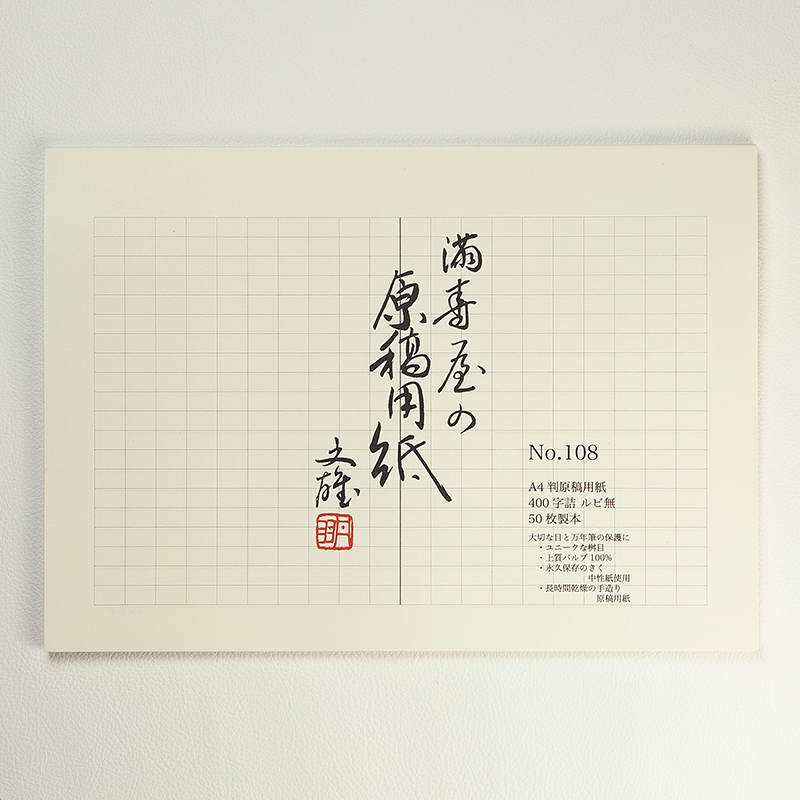 満寿屋の
原稿用紙
文雄
No.108
A4判原稿用紙
400字詰 ルビ無
50枚製本
大切な目と万年筆の保護に
・ユニークな桝目
・上質パルプ100%
・永久保存のきく
中性紙使用
・長時間乾燥の手造り
原稿用紙